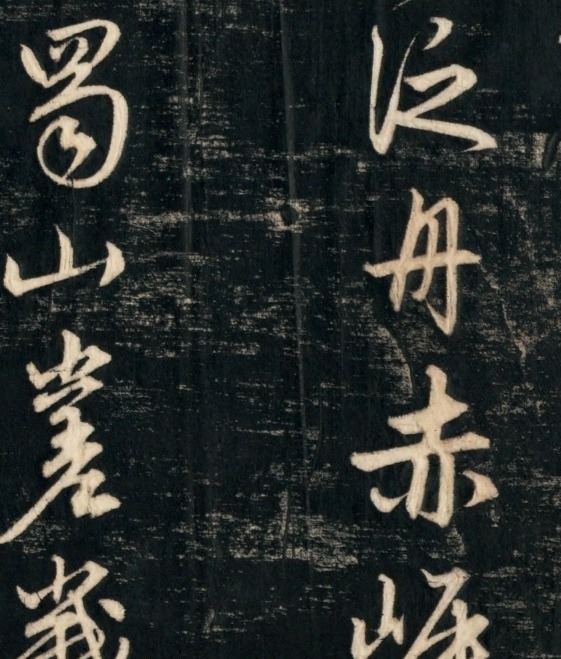 泛舟赤
蜀山嵳峩